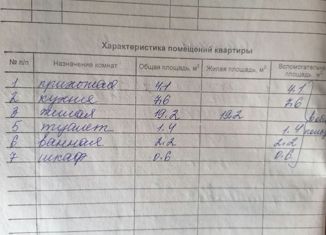 Характеристика помещений квартиры
№ п/п Назначение комнат Общая площадь, м² Жилая площадь, м² Вспомогательная площадь, м²
1 прихожая 4.1 4.1
2 кухня 7.6 7.6
3 жилая 19.2 19.2
5 туалет 1.4 1.4
6 ванная 2.2 2.2
7 шкаф 0.6 0.6